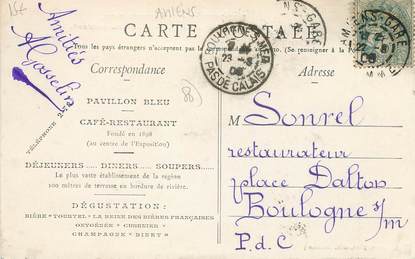 1St
AMIENS
CARTE POSTALE
Tous les pays étrangers n'acceptent pas la (Se renseigner à la
Correspondance
Adresse
Amitiés
AGosselin
88
BOULOGNE-S-MER
PAS DE CALAIS
AMIENS-GARE
PAVILLON BLEU
CAFÉ-RESTAURANT
Fondé en 1898
(au centre de l'Exposition)
TÉLÉPHONE 2-5
DÉJEUNERS..... DINERS..... SOUPERS.....
Le plus vaste établissement de la région
200 mètres de terrasse en bordure de rivière.
DÉGUSTATION:
BIÈRE "TOURTEL" LA REINE DES BIÈRES FRANÇAISES
OXYGÉNÉE - CUSENIER
CHAMPAGNE "BINET"
M Sonrel
restaurateur
place Dalton
Boulogne s/m
P. d. C